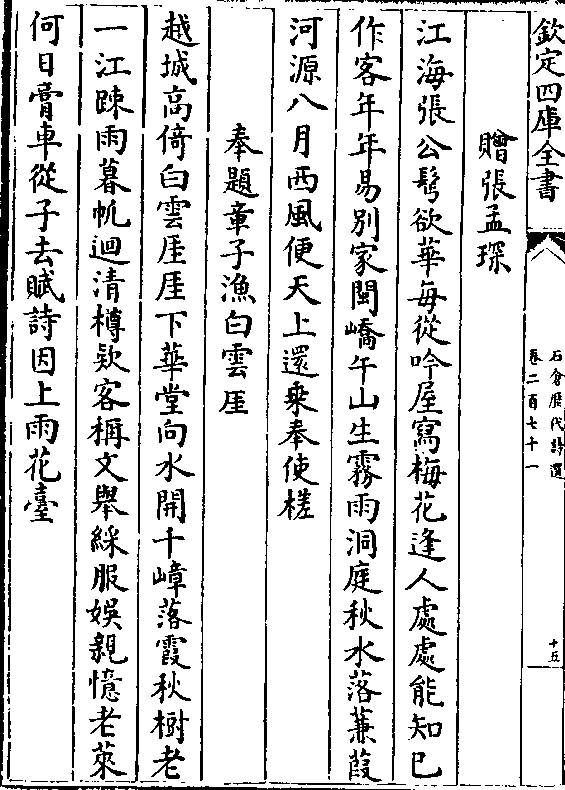 欽定四庫全書
石倉歷代詩選
卷二百七十一
十五
贈張孟琛
江海張公鬂欲華每從吟屋寫梅花逢人處處能知已
作客年年易別家閩嶠午山生霧雨洞庭秋水落蒹葭
河源八月西風便天上還乗奉使槎
奉題章子漁白雲厓
越城高倚白雲厓厓下華堂向水開千嶂落霞秋樹老
一江踈雨暮帆迴清樽欵客稱文舉綵服娯親憶老萊
何日膏車從子去賦詩因上雨花臺